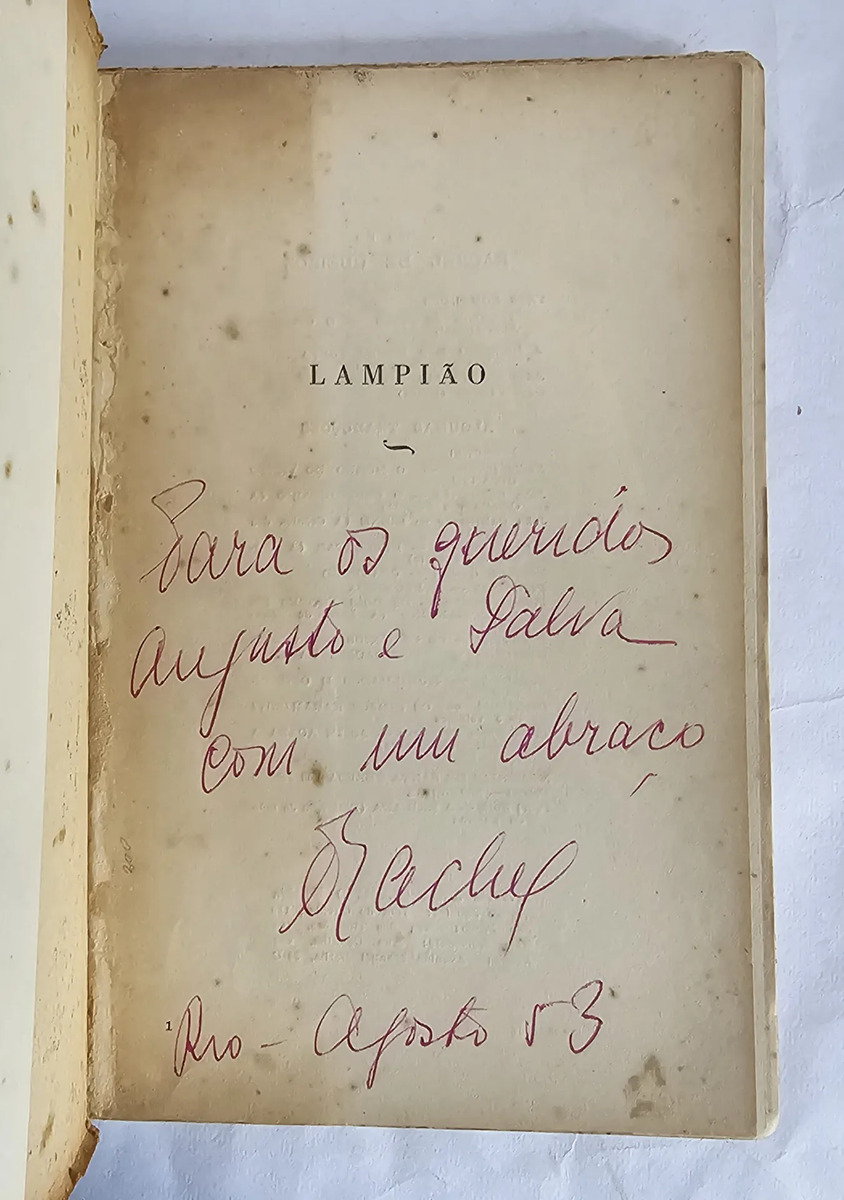 LAMPIÃO
Para os queridos
Augusto e Dalva
com um abraço
Rachel
1
Rio - Agosto 53